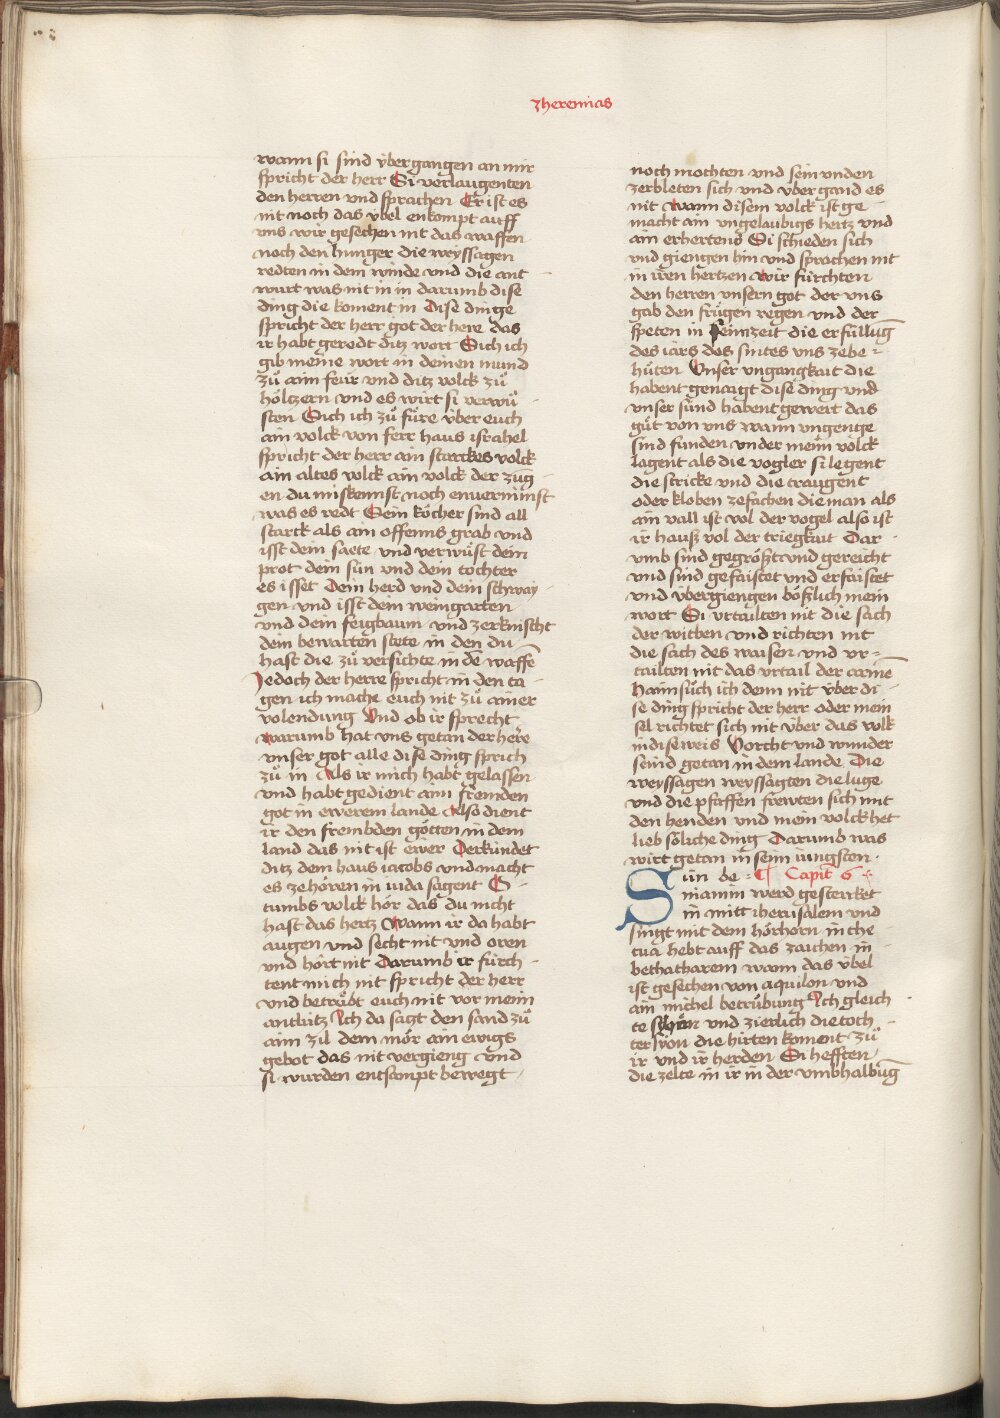 Jheremias
wann si sind v̈bergangen an mir
spricht der herr Si verlaugenten
den herren vnd sprachen Er ist es
nit noch das v̈bel enkompt auff
vns wir gesechen nit das waffen
noch den hunger die weyssagen
redten in dem winde vnd die ant
wurt was nit in in darumb dise
ding die koment in Dise dinge
spricht der herr got der here das
ir habt geredt ditz wort Sich ich
gib meine wort in deinen mund
zuͤ aim feür vnd ditz volck zuͤ
höltzern vnd es wirt si verwuͤ
sten Sich ich zuͤ füre v̈ber euch
ain volck von ferr haus israhel
spricht der herr ain starckes volck
ain altes volck ain volck der zūg
en du miskennst noch enuernimst
was es redt Sein köcher sind all
starck als ain offenns grab vnd
isst dein saete vnd verwüst dein
prot dein sün vnd dein tochter
es isset Dein herd vnd dein schway
gen vnd isst dein weingarten
vnd dein feigbaum vnd zerknischt
dein bewarten stete in den du
hast die zuͤ versichte in dē waffē
Jedoch der herre spricht in den ta
gen ich mache euch nit zuͤ ainer
volendung Vnd ob ir sprecht
warumb hat vns getan der here
vnser got alle dise ding sprich
zuͤ in Als ir mich habt gelassen
vnd habt gedient aim fremden
got in ewerem lande Also dient
ir den frembden götten in dem
land das nit ist ewer Verkündet
ditz dem haus iacobs vnd macht
es zehören in iuda sagent O
tumbs volck hör das du nicht
hast das hertz Wann ir da habt
augen vnd secht nit vnd oren
vnd hört nit Darumb ir fürch
tent mich nit spricht der herr
vnd betrübt euch nit vor meim
antlütz Ich da satzt den sand zuͤ
aim zil dem mör ain ewigs
gebot das nit vergieng vnd
si wurden entsampt bewegt
noch mochten vnd sein vnden
zerbleten sich vnd v̈bergand es
nit Wann disem volck ist ge
macht ain vngelaubigs hertz vnd
ain erhertend Si schieden sich
vnd giengen hin vnd sprachen nit
in iren hertzen Wir fürchten
den herren vnsern got der vns
gab den frügen regen vnd der
speten in seim zeit die erfüllūg
des iars des snites vns zebe
hüten Vnser vngangkait die
habent genaigt dise ding vnd
vnser sünd habent gewert das
guͤt von vns wann vngenge
sind funden vnder meim volck
lagent als die vogler si legent
die stricke vnd die traugent
oder kloben zefachen die man als
ain vall ist vol der vogel also ist
ir hauß vol der triegkait Dar
vmb sind gegrößt vnd gereicht
vnd sind gefaistet vnd erfaistet
vnd v̈bergiengen bößlich mein
wort Si vrtailten nit die sach
der witben vnd richten nit
die sach des waisen vnd vr
tailten nit das vrtail der armē
Haimsuͤch ich denn nit v̈ber di
se ding spricht der herr oder mein
sel richtet sich nit v̈ber das volk
in dise weis Vorcht vnd wunder
seind getan in dem lande Die
weyssagen weyssagten die luge
vnd die pfaffen frewten sich mit
den henden vnd mein volck het
lieb söliche ding Darumb was
wirt getan in seim iungsten
Sün be Capit̄ 6
niamin werd gesterrket
in mitt iherusalem vnd
singt mit dem hörhorn in the
cua hebt auff das zaichen in
bethacharem wann das v̈bel
ist gesechen von aquilon vnd
ain michel betrübung Ich gleich
te schön vnd zierlich die toch
ter syon die hirten koment zuͤ
ir vnd ir herden Si hefften
die zelte in ir in der vmbhalbūg